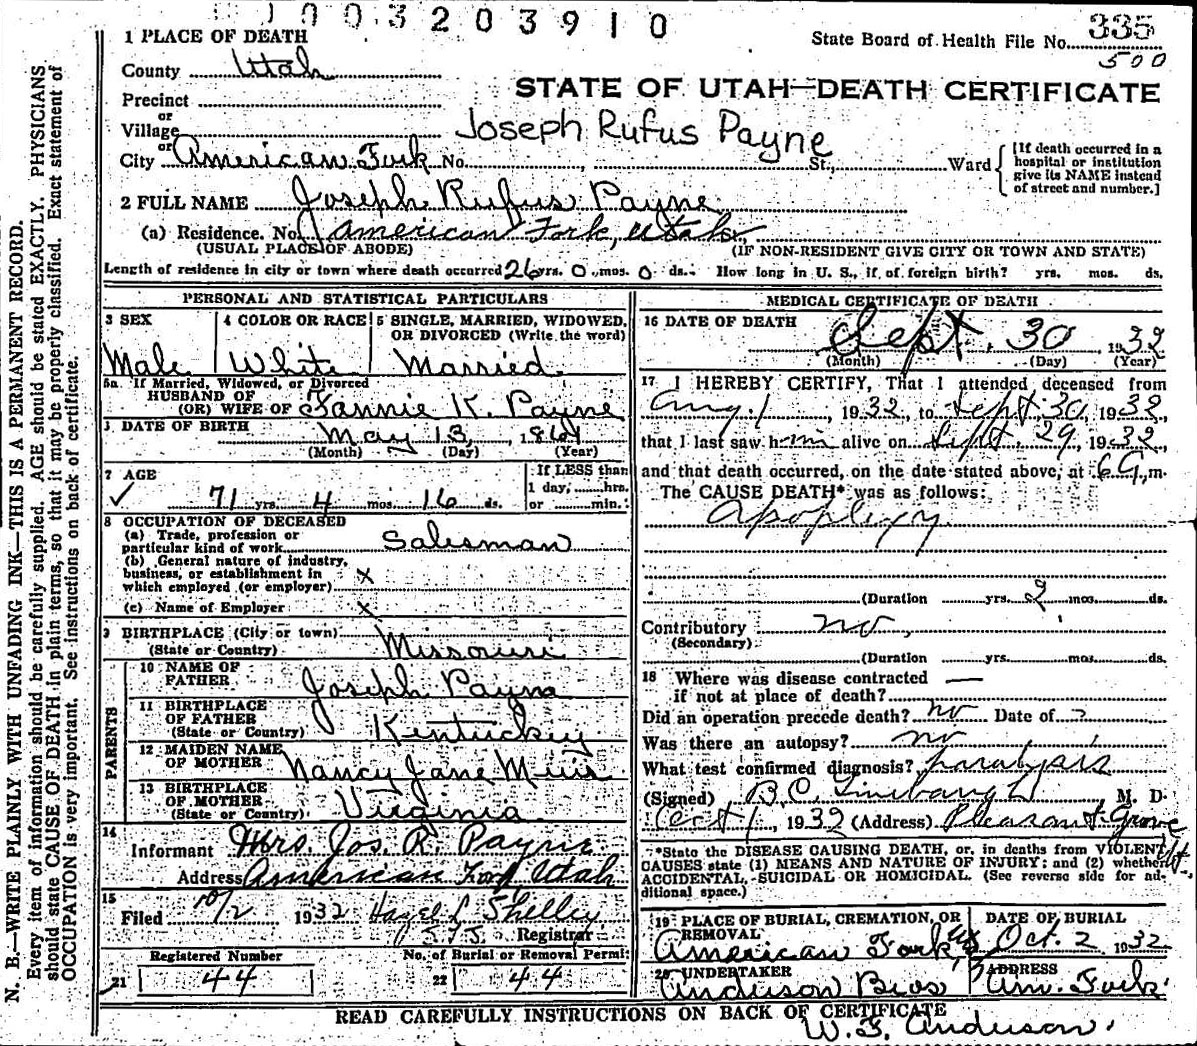 1003203910
335
State Board of Health File No.
500
1 PLACE OF DEATH
County Utah
STATE OF UTAH—DEATH CERTIFICATE
Precinct
or
Village
Joseph Rufus Payne
or
City American Fork No. St., Ward
[If death occurred in a hospital or institution give its NAME instead of street and number.]
2 FULL NAME Joseph Rufus Payne
(a) Residence. No. American Fork, Utah St.,
(USUAL PLACE OF ABODE) (IF NON-RESIDENT GIVE CITY OR TOWN AND STATE)
Length of residence in city or town where death occurred 26 yrs. 0 mos. 0 ds. How long in U. S., if of foreign birth? yrs. mos. ds.
PERSONAL AND STATISTICAL PARTICULARS
3 SEX
Male
4 COLOR OR RACE
White
5 SINGLE, MARRIED, WIDOWED, OR DIVORCED (Write the word)
Married
5a If Married, Widowed, or Divorced
HUSBAND OF
(OR) WIFE OF Fannie K. Payne
DATE OF BIRTH
May 13, 1861
(Month) (Day) (Year)
7 AGE
71 yrs. 4 mos. 16 ds.
If LESS than
1 day, hrs.
or min.
8 OCCUPATION OF DECEASED
(a) Trade, profession or
particular kind of work Salesman
(b) General nature of industry,
business, or establishment in
which employed (or employer) x
(c) Name of Employer x
9 BIRTHPLACE (City or town)
(State or Country) Missouri
PARENTS
10 NAME OF
FATHER Joseph Payne
11 BIRTHPLACE
OF FATHER
(State or Country) Kentuckey
12 MAIDEN NAME
OF MOTHER Nancy Jane Muir
13 BIRTHPLACE
OF MOTHER
(State or Country) Virginia
14
Informant Mrs. Jos. R. Payne
Address American Fork Utah
15
Filed 10/2 1932 Hazel L Shelley
Registrar
Registered Number
21 44
No. of Burial or Removal Permit
22 44
MEDICAL CERTIFICATE OF DEATH
16 DATE OF DEATH
Sept. 30 1932
(Month) (Day) (Year)
17 I HEREBY CERTIFY, That I attended deceased from
Aug. 1, 1932, to Sept. 30, 1932,
that I last saw him alive on Sept. 29, 1932,
and that death occurred, on the date stated above, at 6 a. m.
The CAUSE DEATH* was as follows:
Apoplexy
(Duration yrs. 2 mos. ds.
Contributory no,
(Secondary)
(Duration yrs. mos. ds.
18 Where was disease contracted —
if not at place of death?
Did an operation precede death? no Date of
Was there an autopsy? no
What test confirmed diagnosis? paralysis
(Signed) B.C. Linebaugh M. D.
Oct 1, 1932 (Address) Pleasant Grove
*State the DISEASE CAUSING DEATH, or, in deaths from VIOLENT
CAUSES state (1) MEANS AND NATURE OF INJURY; and (2) whether
ACCIDENTAL, SUICIDAL OR HOMICIDAL. (See reverse side for ad-
ditional space.)
19 PLACE OF BURIAL, CREMATION, OR
REMOVAL
American Fork, Ut
DATE OF BURIAL
Oct. 2 1932
20 UNDERTAKER
Anderson Bros
ADDRESS
Am. Fork
READ CAREFULLY INSTRUCTIONS ON BACK OF CERTIFICATE
W. F. Anderson.
N. B.—WRITE PLAINLY WITH UNFADING INK—THIS IS A PERMANENT RECORD.
Every item of information should be carefully supplied. AGE should be stated EXACTLY. PHYSICIANS
should state CAUSE OF DEATH in plain terms, so that it may be properly classified. Exact statement of
OCCUPATION is very important. See instructions on back of certificate.